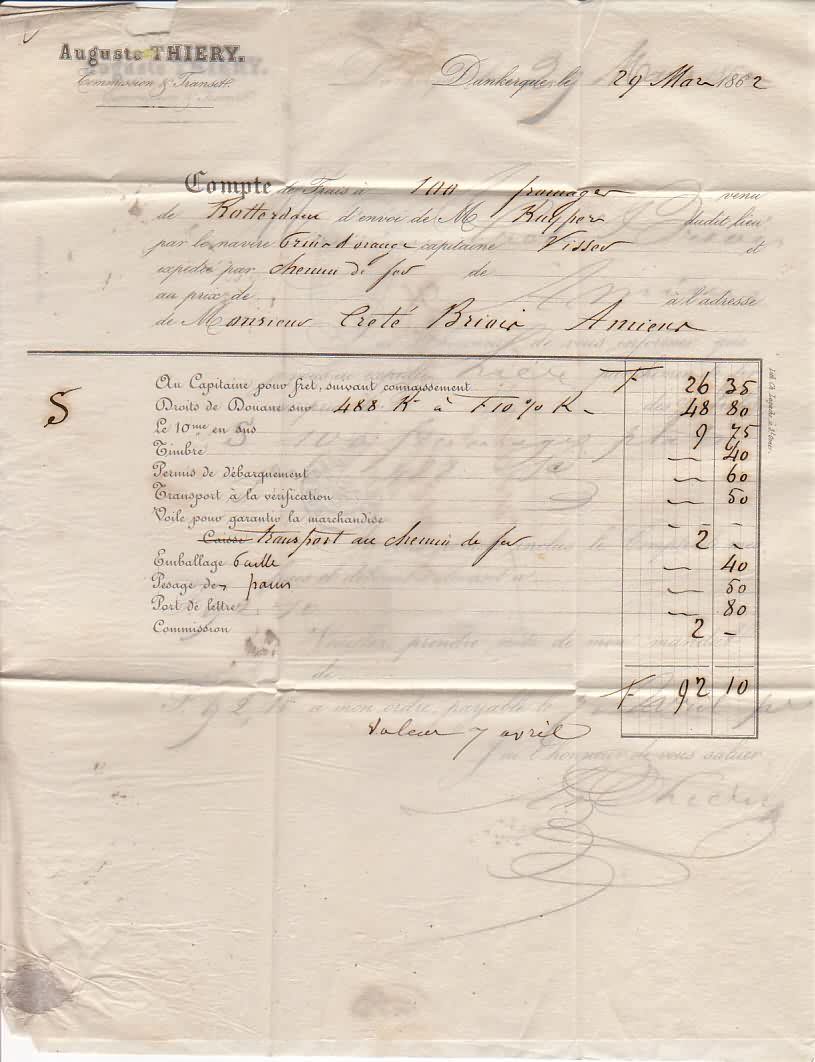 Auguste THIERY.
Commission & Transit.
Dunkerque, le 29 Mars 1862
Compte de Frais à 100 fromages venu
de Rotterdam d'envoi de M Kuyper dudit lieu
par le navire Prins d'orange capitaine Visser et
expédié par chemin de fer de
au prix de à l'adresse
de Monsieur Creté Briois Amiens
S
Au Capitaine pour fret, suivant connaissement F 26 35
Droits de Douane sur 488 K à F 10 % K - 48 80
Le 10me en sus 9 75
Timbre — 40
Permis de débarquement — 60
Transport à la vérification — 50
Voile pour garantir la marchandise — -
Caisse transport au chemin de fer 2 -
Emballage paille — 40
Pesage des pains — 50
Port de lettre — 80
Commission 2 -
F 92 10
Valeur 7 avril
à mon ordre, payable le
J'ai l'honneur de vous saluer
Thiery